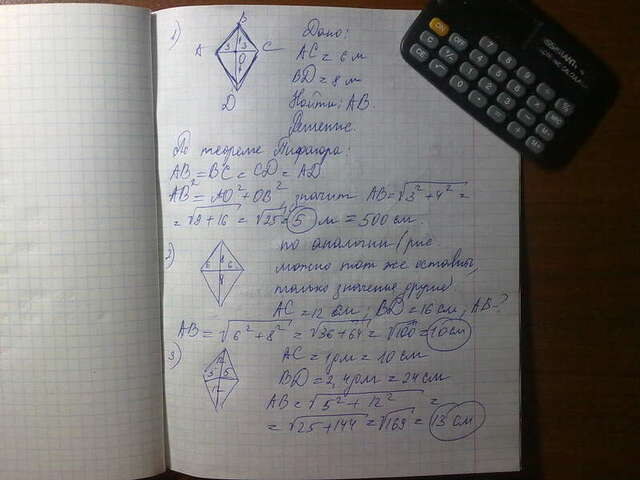 1)
B
A 3 3 C
O
D
Дано:
AC = 6 м
BD = 8 м
Найти: AB.
Решение.
По теореме Пифагора:
AB = BC = CD = AD
AB² = AO² + OB² значит AB = √3² + 4² =
= √9 + 16 = √25 = 5 м = 500 см.
2)
6 6
по аналогии (рис.
можно тот же оставить,
только значения другие)
AC = 12 см; BD = 16 см; AB - ?
AB = √6² + 8² = √36 + 64 = √100 = 10 см
3)
12
5 5
12
AC = 1 дм = 10 см
BD = 2,4 дм = 24 см
AB = √5² + 12² =
= √25 + 144 = √169 = 13 см